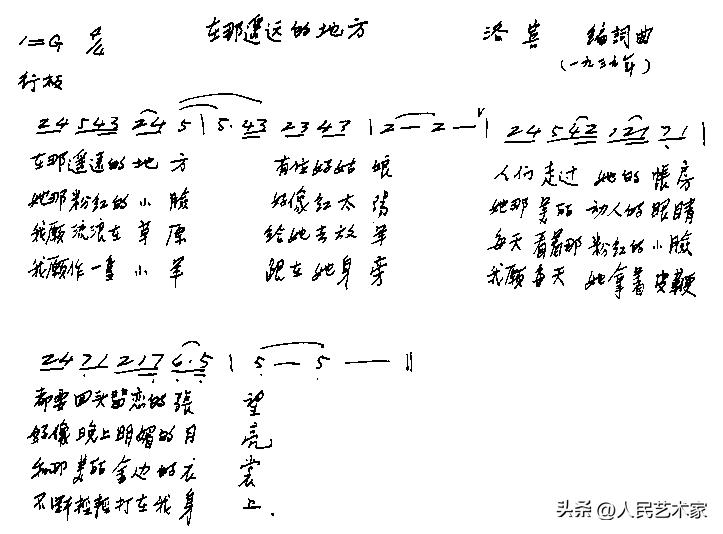 在那遥远的地方
1=G 4/4 洛宾 编詞曲
行板 (一九三九年)
2 4 5 4 3 2 4 5 | 5. 4 3 2 3 4 3 | 2 — 2 — V | 2 4 5 4 2 1 2 1 7 1 |
在那遥遠的地方 有位好姑娘 人们走过 她的帳房
她那粉红的小臉 好像红太陽 她那美的 动人的眼睛
我願流浪在草原 给她去放羊 每天看着那粉红的小臉
我願作一隻小羊 跟在她身旁 我願每天 她拿着皮鞭
2 4 7 1 2 1 7 6. 5 | 5 — 5 — — ‖
都要回头留恋的張望
好像晚上明媚的月亮
和那美的金边的衣裳
不断轻轻打在我身上.
头条 @人民艺术家